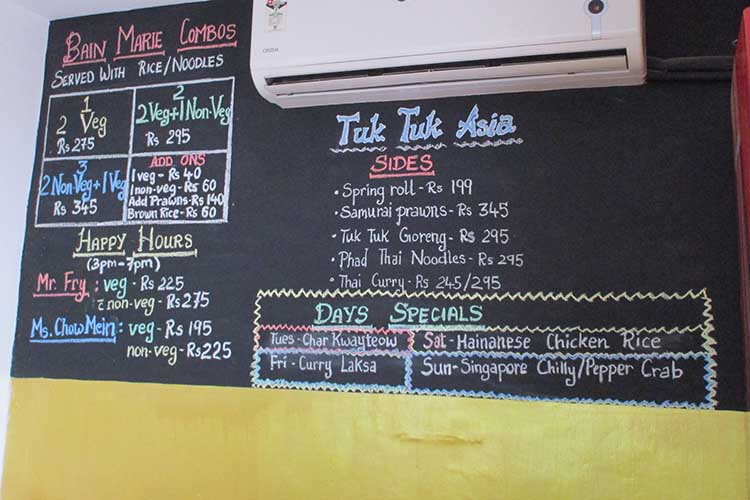 BAIN MARIE COMBOS
SERVED WITH RICE/NOODLES
1
2 Veg
Rs 275
2
2 Veg+1 Non-Veg
Rs 295
3
2 Non-Veg+1 Veg
Rs 345
ADD ONS
1 veg - Rs 40
1 non-veg - Rs 60
Add Prawns - Rs 140
Brown Rice - Rs 60
HAPPY HOURS
(3pm-7pm)
Mr. Fry : veg - Rs 225
non-veg - Rs 275
Ms. Chow Mein : veg - Rs 195
non-veg - Rs 225
Tuk Tuk Asia
SIDES
• Spring roll - Rs 199
• Samurai prawns - Rs 345
• Tuk Tuk Goreng - Rs 295
• Phad Thai Noodles - Rs 295
• Thai Curry - Rs 245/295
DAYS SPECIALS
Tues - Char Kwayteow
Sat - Hainanese Chicken Rice
Fri - Curry Laksa
Sun - Singapore Chilly/Pepper Crab